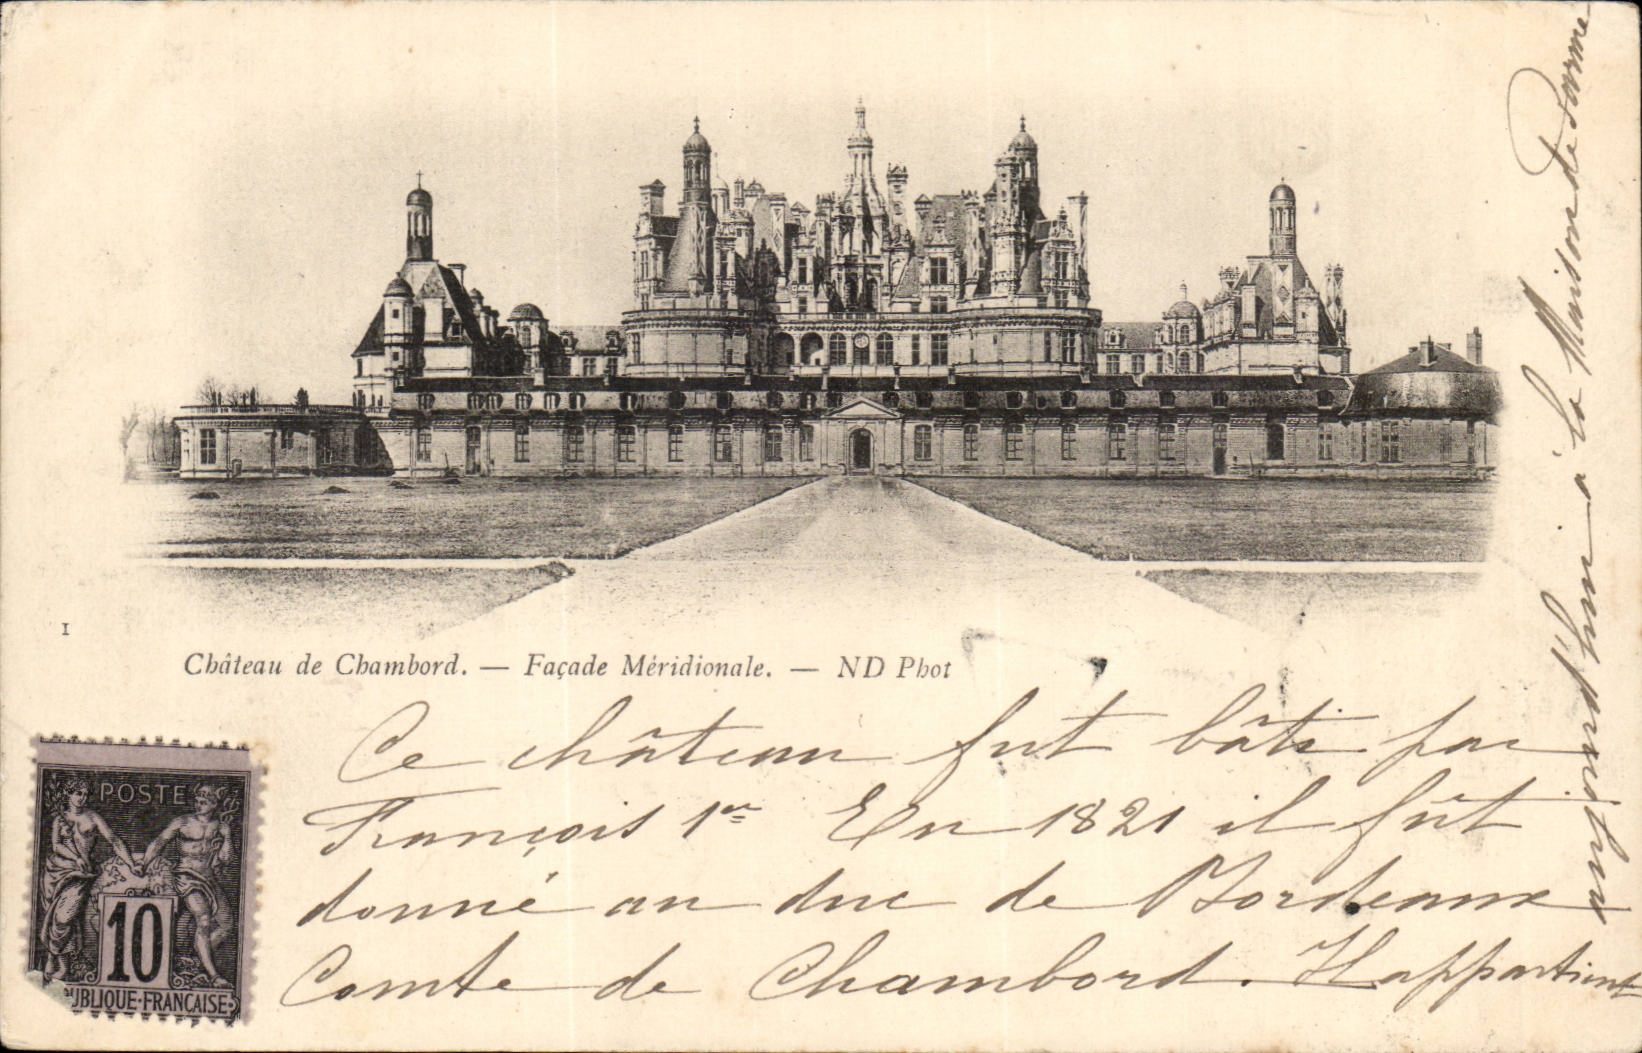 1
Château de Chambord. — Façade Méridionale. — ND Phot
POSTE
10
UBLIQUE·FRANÇAISE
Ce château fut bâti par
François 1er En 1821 il fût
donné au duc de Bordeaux
Comte de Chambord. Il appartient
aujourd'hui à la Maison de Parme